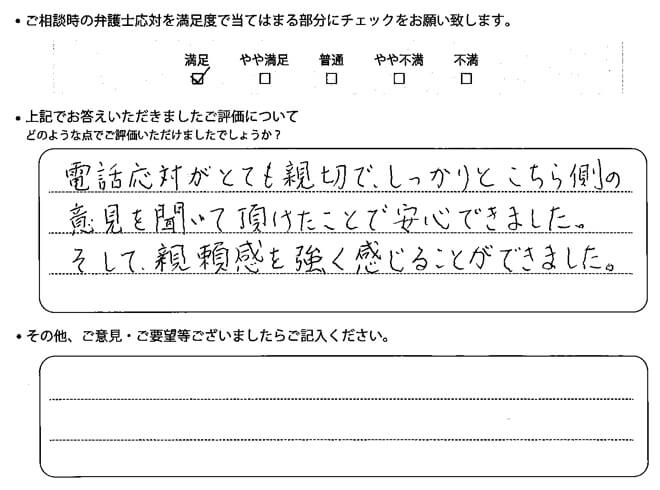 ・ご相談時の弁護士応対を満足度で当てはまる部分にチェックをお願い致します。
満足 やや満足 普通 やや不満 不満
☑ ☐ ☐ ☐ ☐
・上記でお答えいただきましたご評価について
どのような点でご評価いただけましたでしょうか？
電話応対がとても親切で、しっかりとこちら側の
意見を聞いて頂けたことで安心できました。
そして、親頼感を強く感じることができました。
・その他、ご意見・ご要望等ございましたらご記入ください。